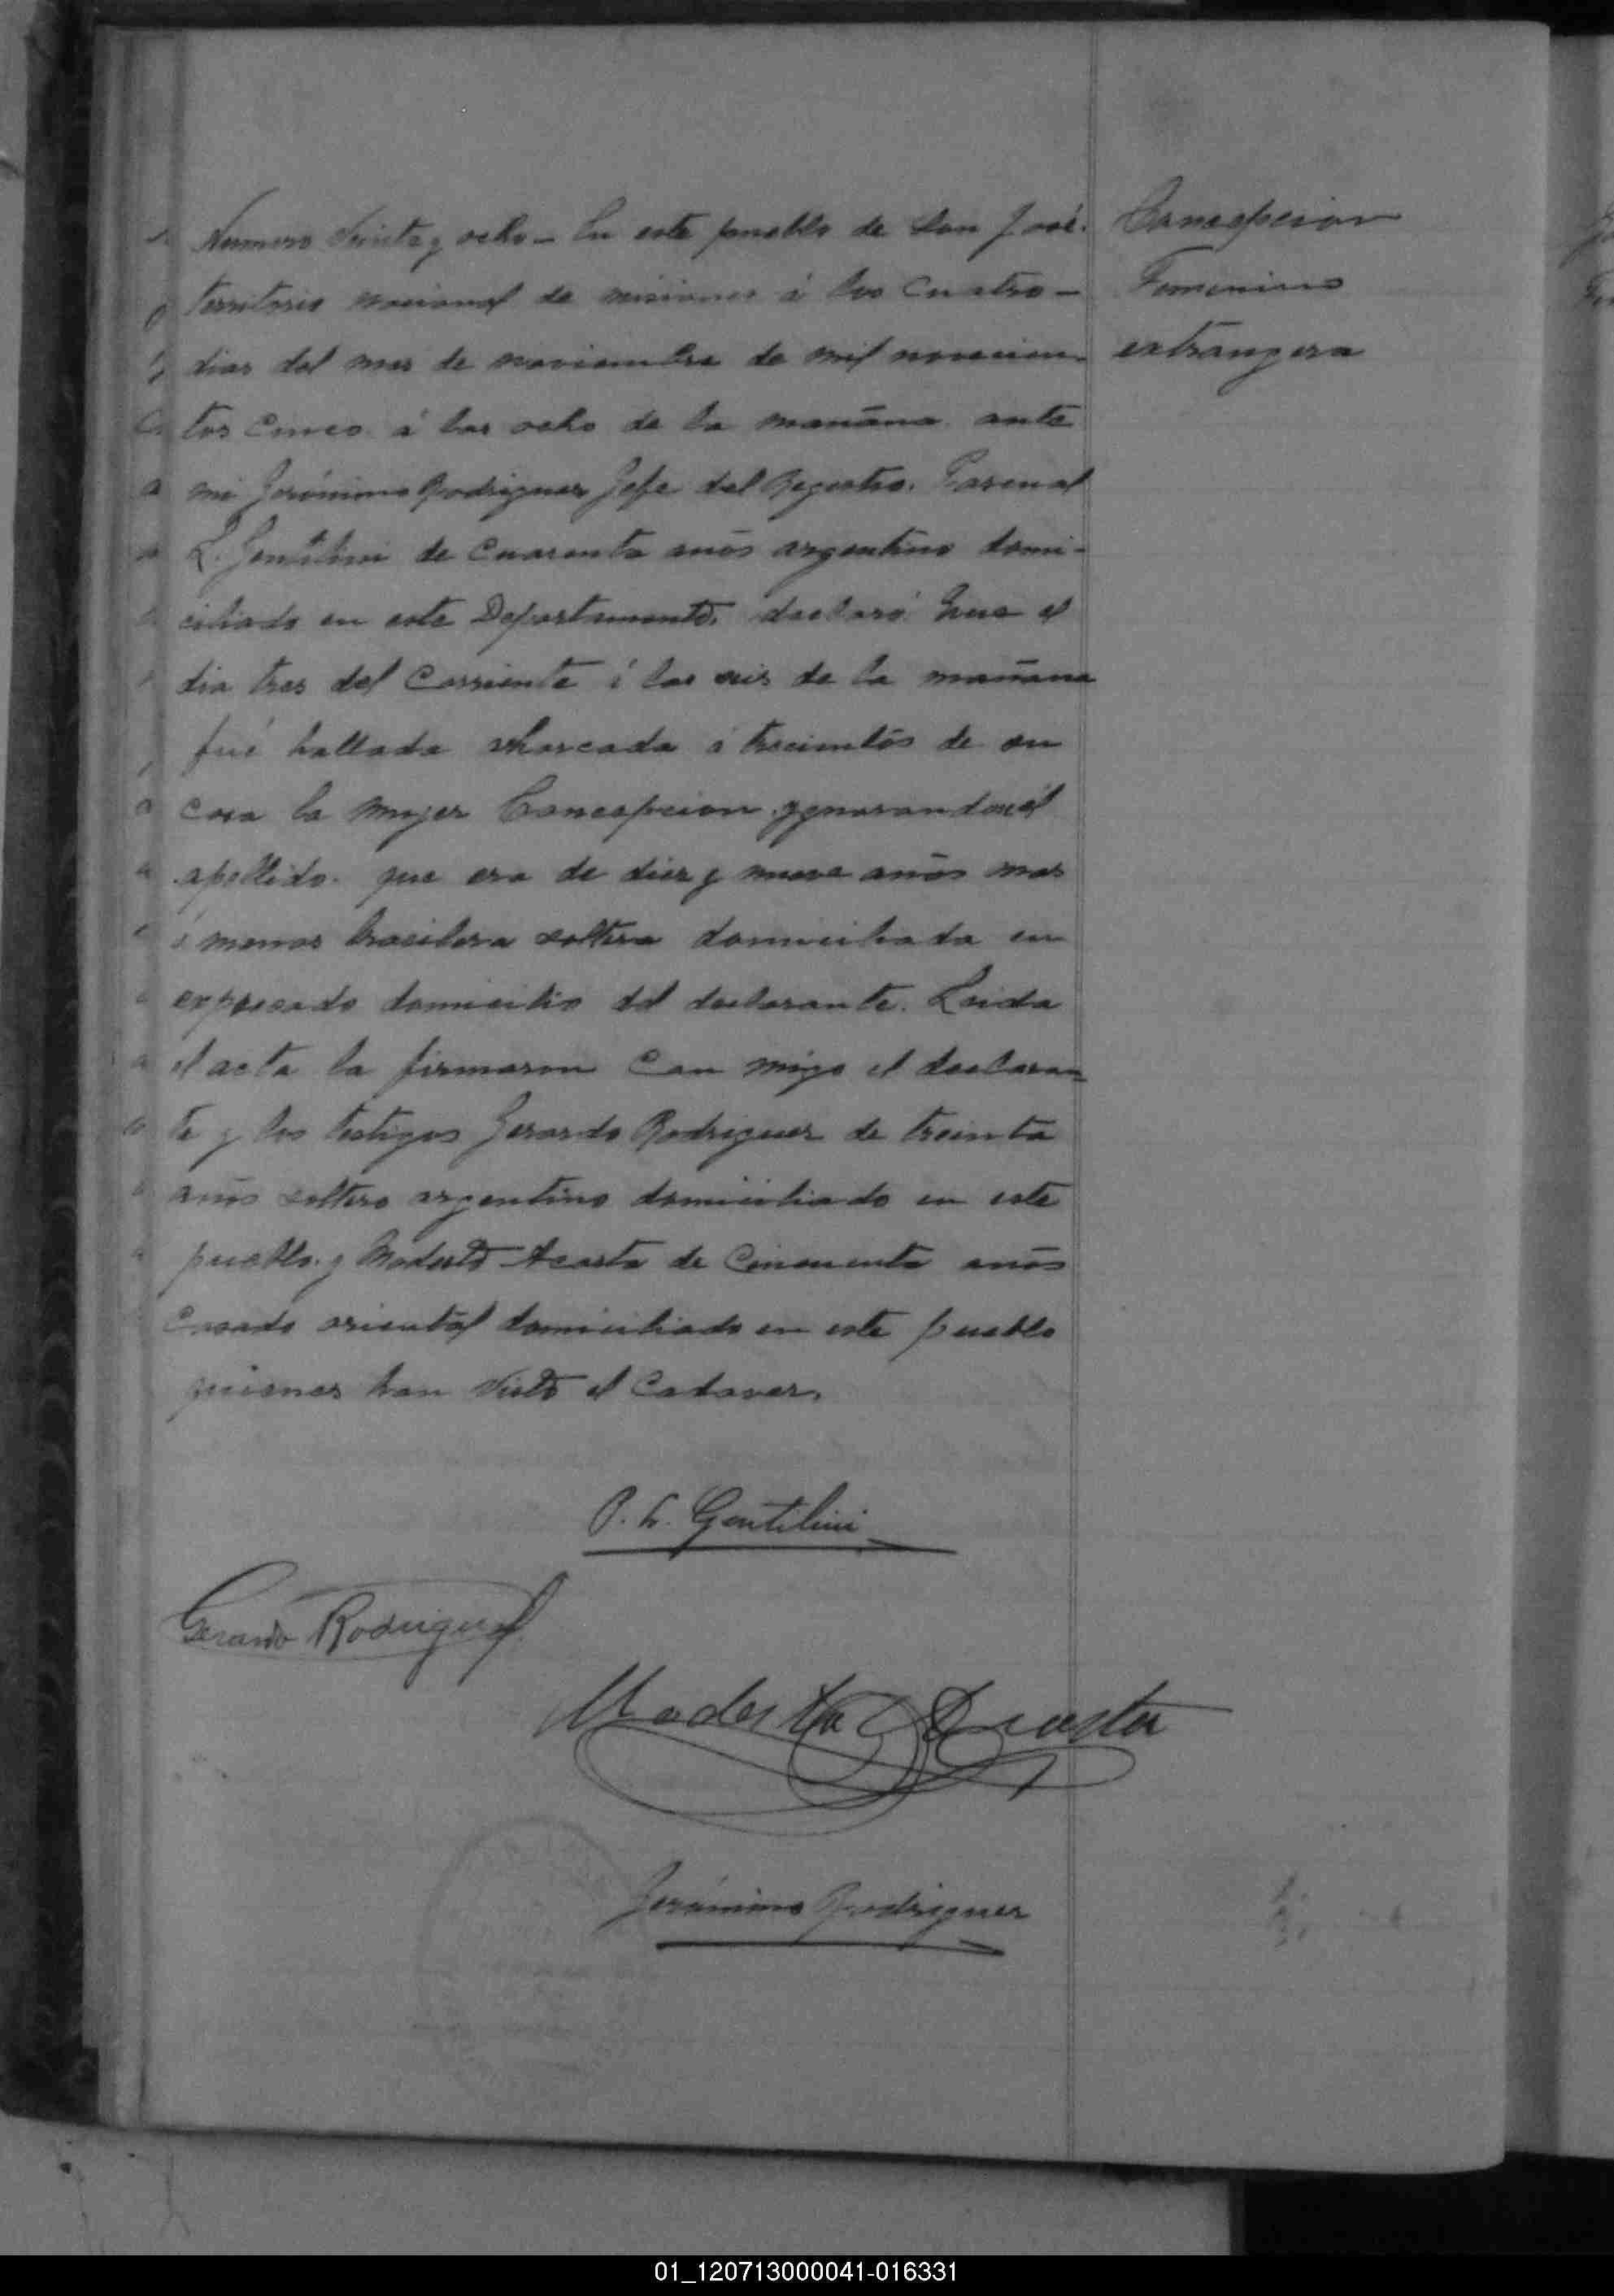 Numero Treinta y ocho - En este pueblo de San José.
territorio nacional de misiones á los Cuatro -
dias del mes de noviembre de mil novecien-
tos Cinco á las ocho de la manãna ante
mi Jerónimo Rodriguez Jefe del Registro. Pascual
L. Gentilini de Cuarenta anõs argentino domi-
ciliado en este Departamento, declaró que el
dia tres del Corriente á las seis de la manãna
fué hallada ahorcada á trecientos de su
casa la Mujer Concepcion ygnorandose el
apellido. que era de diez y nueve anõs mas
ó menos brasilera soltera domiciliada en
expresado domicilio del declarante. Leida
el acta la firmaron Con migo el declaran-
te y los testigos Gerardo Rodriguez de treinta
anõs soltero argentino domiciliado en este
pueblo. y Modesto Acosta de Cincuenta anõs
Casado oriental domiciliado en este pueblo
quienes han visto el Cadaver.
Concepcion
Femenino
extrangera
P. L. Gentilini
Gerardo Rodriguez
Modesto Acosta
Jerónimo Rodriguez
01_120713000041-016331